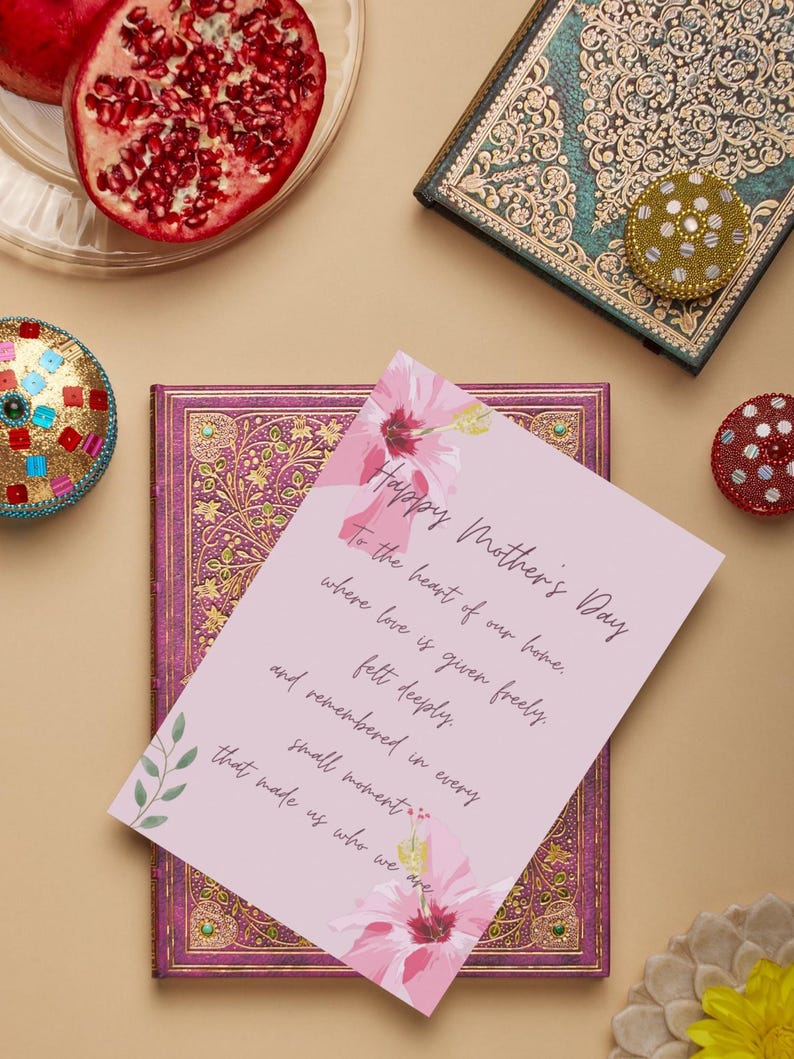 Happy Mother's Day
To the heart of our home,
where love is given freely,
felt deeply,
and remembered in every
small moment
that made us who we are